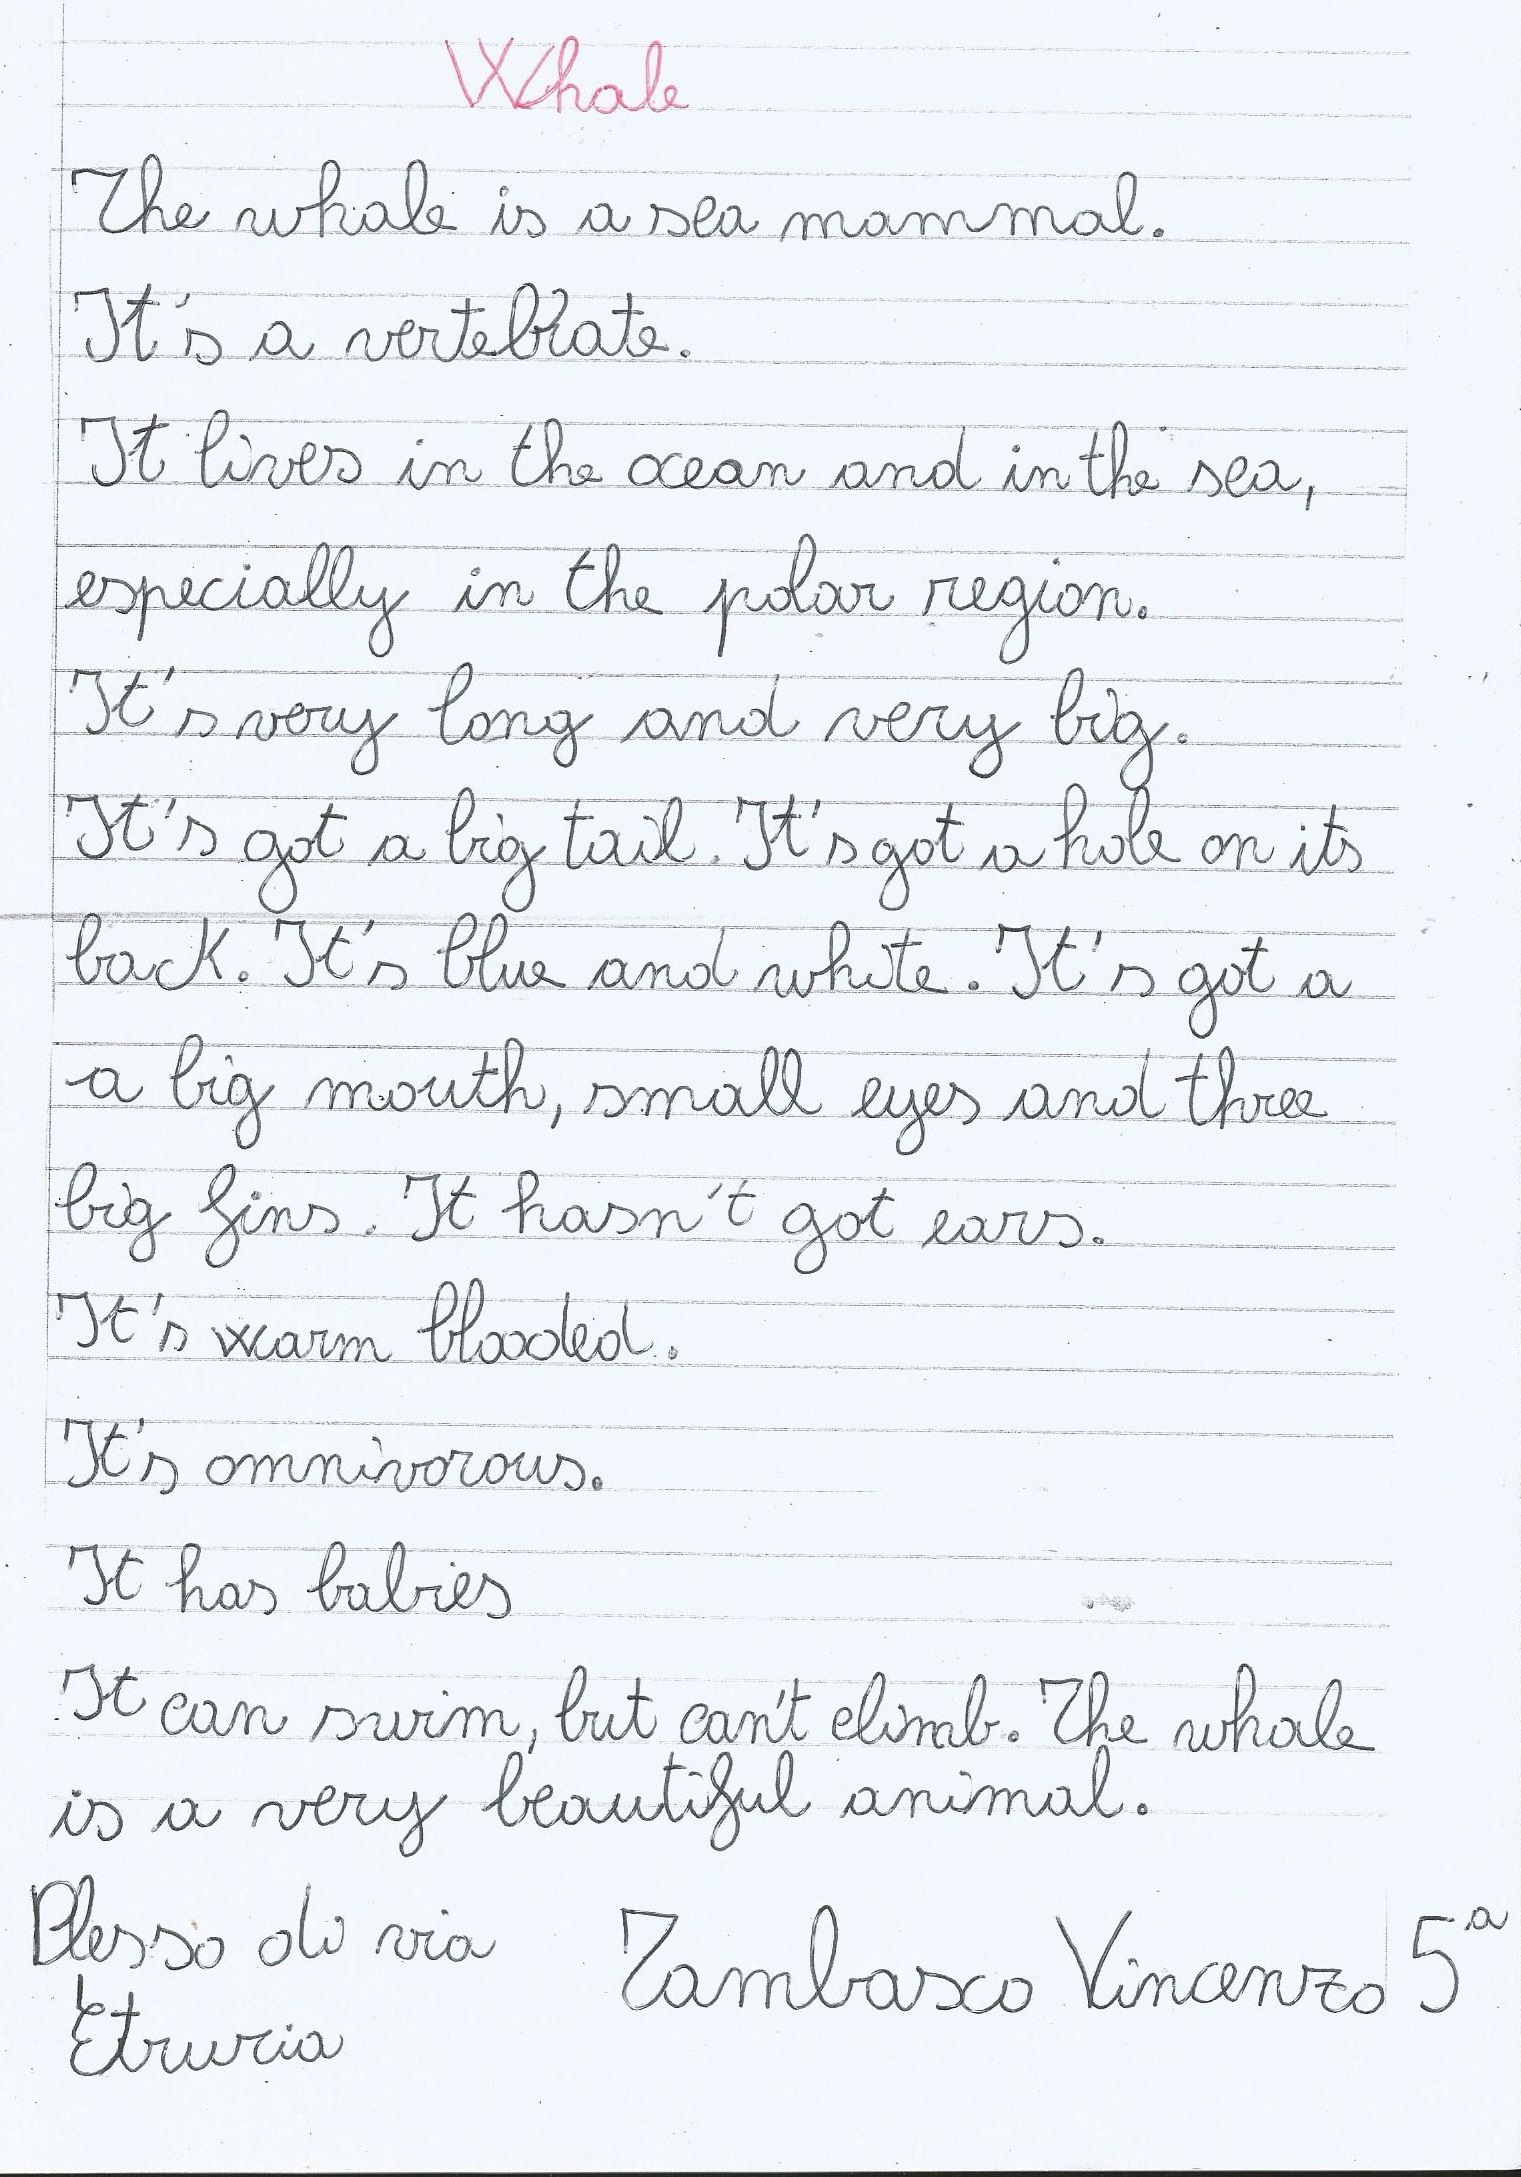 Whale
The whale is a sea mammal.
It's a vertebrate.
It lives in the ocean and in the sea,
especially in the polar region.
It's very long and very big.
It's got a big tail. It's got a hole on its
back. It's blue and white. It's got a
a big mouth, small eyes and three
big fins. It hasn't got ears.
It's warm blooded.
It's omnivorous.
It has babies
It can swim, but can't climb. The whale
is a very beautiful animal.
Plesso di via Tambasco Vincenzo 5a
Etruria